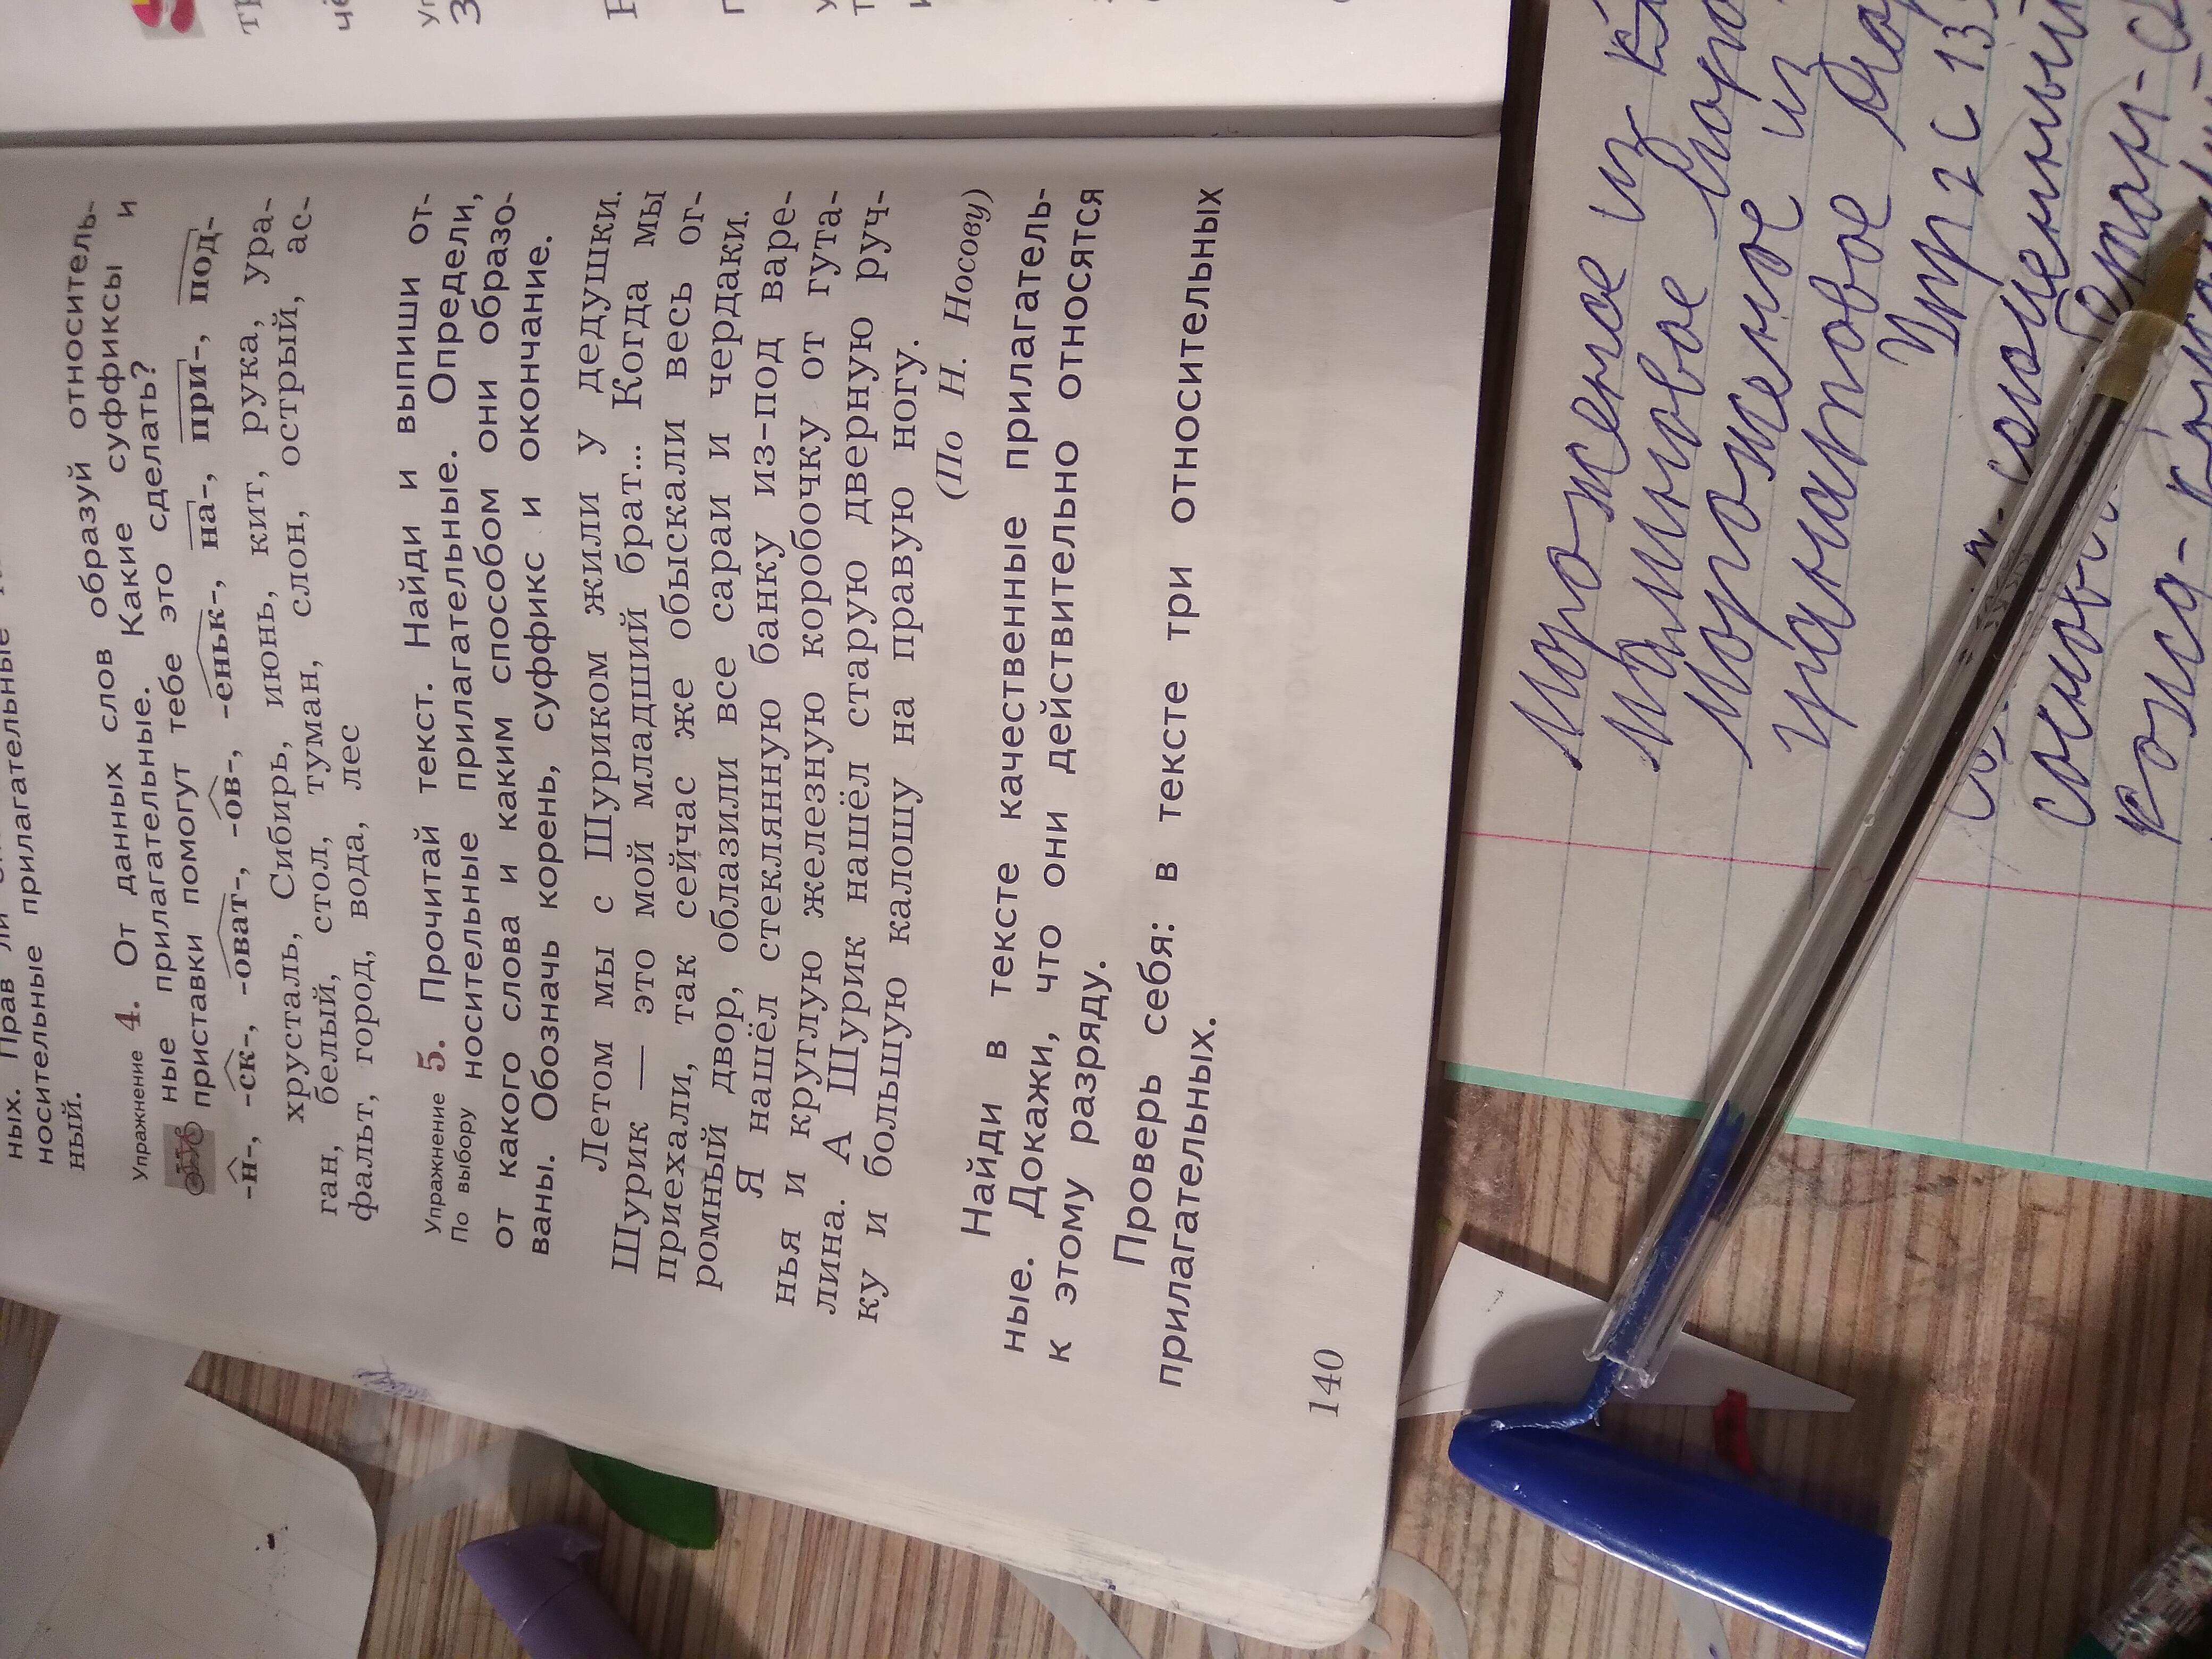 ных. Прав ли
носительные прилагательные
ный.
Упражнение 4. От данных слов образуй относитель-
ные прилагательные. Какие суффиксы и
приставки помогут тебе это сделать?
-н-, -ск-, -оват-, -ов-, -еньк-, на-, при-, под-
хрусталь, Сибирь, июнь, кит, рука, ура-
ган, белый, стол, туман, слон, острый, ас-
фальт, город, вода, лес
Упражнение 5. Прочитай текст. Найди и выпиши от-
По выбору носительные прилагательные. Определи,
от какого слова и каким способом они образо-
ваны. Обозначь корень, суффикс и окончание.
Летом мы с Шуриком жили у дедушки.
Шурик — это мой младший брат... Когда мы
приехали, так сейчас же обыскали весь ог-
ромный двор, облазили все сараи и чердаки.
Я нашёл стеклянную банку из-под варе-
нья и круглую железную коробочку от гута-
лина. А Шурик нашёл старую дверную руч-
ку и большую калошу на правую ногу.
(По Н. Носову)
Найди в тексте качественные прилагатель-
ные. Докажи, что они действительно относятся
к этому разряду.
Проверь себя: в тексте три относительных
прилагательных.
140
мороженое из
малиновое
мороженое из
гранатовое
Упр 2 с 13
роща-